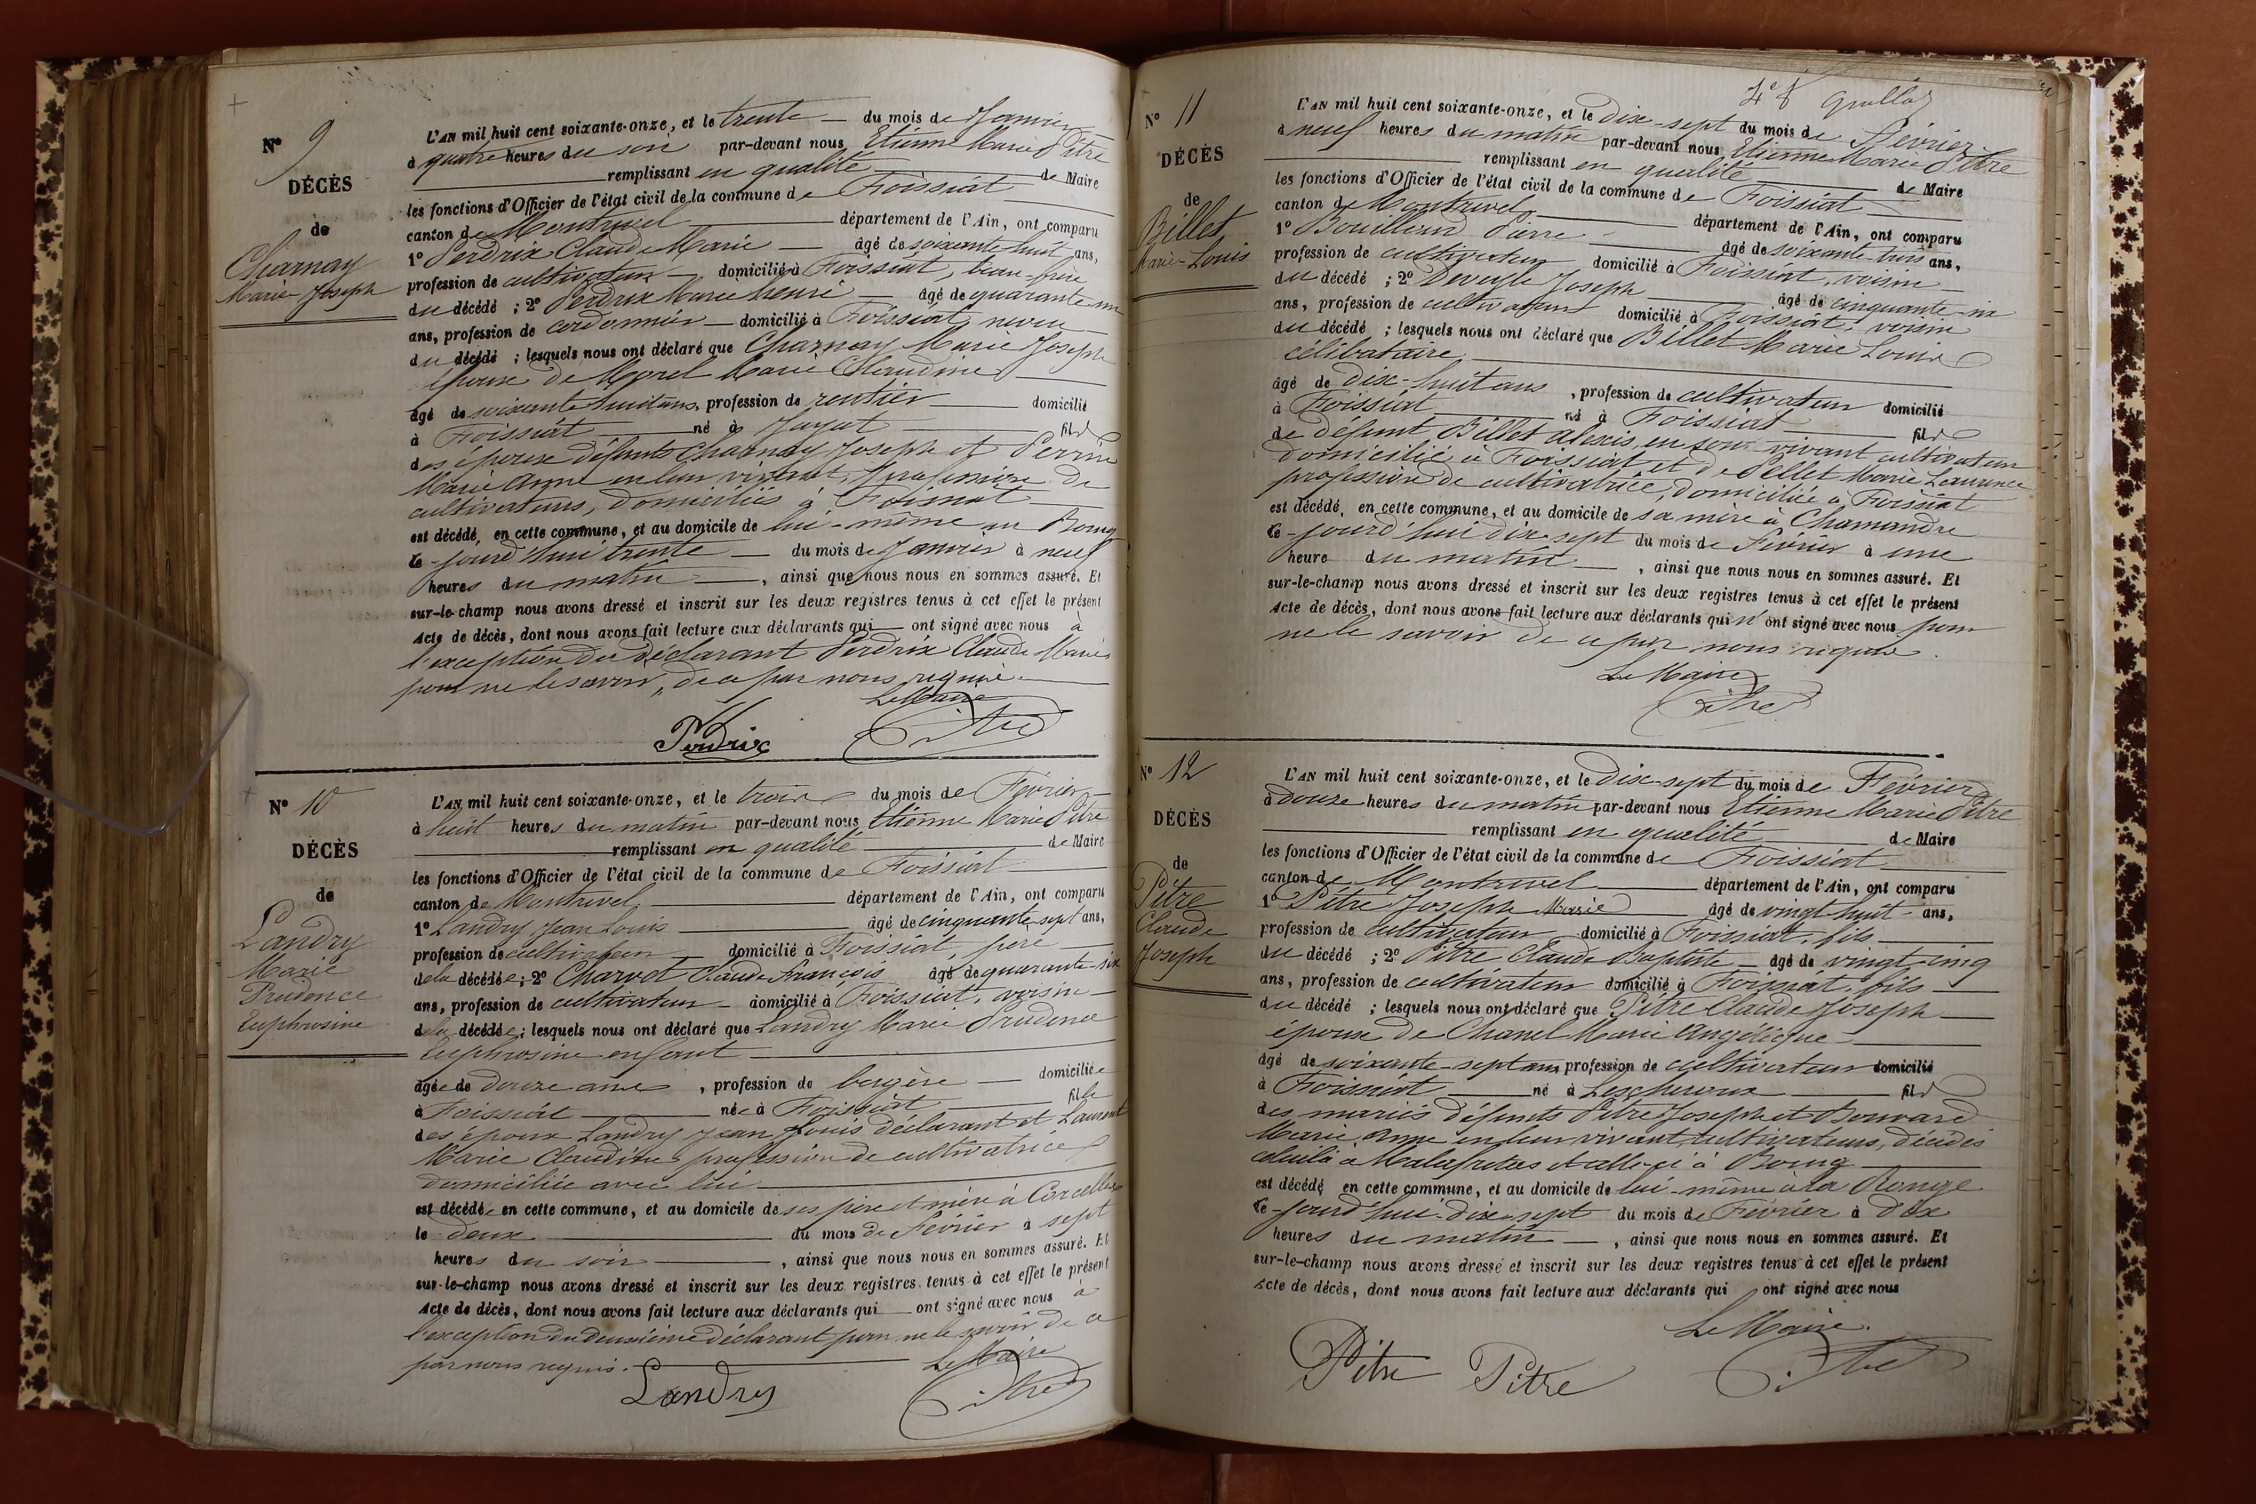 N° 9
DÉCÈS
de
Charnay
Marie Joseph
L'AN mil huit cent soixante-onze, et le trente du mois de Janvier
à quatre heures du soir par-devant nous Etienne Marie Pitre
remplissant en qualité de Maire
les fonctions d'Officier de l'état civil de la commune de Foissiat
canton de Montrevel département de l'Ain, ont comparu
1° Perdrix Claude Marie âgé de soixante huit ans,
profession de cultivateur domicilié à Foissiat, beau-frère
du décédé ; 2° Perdrix Marie henri âgé de quarante un
ans, profession de cordonnier domicilié à Foissiat neveu
du décédé ; lesquels nous ont déclaré que Charnay Marie Joseph
époux de Morel Marie Claudine
âgé de soixante huit ans, profession de rentier domicilié
à Foissiat né à Jayat fils
des épouse défunts Charnay Joseph et Perrin
Marie Anne en leur vivant, profession de
cultivateurs, domiciliés à Foissiat
est décédé, en cette commune, et au domicile de lui-même au Bourg
ce jourd'hui trente du mois de Janvier à neuf
heures du matin, ainsi que nous nous en sommes assuré. Et
sur-le-champ nous avons dressé et inscrit sur les deux registres tenus à cet effet le présent
Acte de décès, dont nous avons fait lecture aux déclarants qui ont signé avec nous à
l'exception du déclarant Perdrix Claude Marie
pour ne le savoir, de ce par nous requis.
Le Maire
Perdrix Pitre
N° 10
DÉCÈS
de
Landry
Marie
Prudence
Euphrosine
L'AN mil huit cent soixante-onze, et le trois du mois de Février
à huit heures du matin par-devant nous Etienne Marie Pitre
remplissant en qualité de Maire
les fonctions d'Officier de l'état civil de la commune de Foissiat
canton de Montrevel département de l'Ain, ont comparu
1° Landry Jean Louis âgé de cinquante sept ans,
profession de cultivateur domicilié à Foissiat, père
de la décédée ; 2° Charvet Claude François âgé de quarante six
ans, profession de cultivateur domicilié à Foissiat, voisin
de la décédée ; lesquels nous ont déclaré que Landry Marie Prudence
Euphrosine enfant
âgée de douze ans, profession de bergère domiciliée
à Foissiat née à Foissiat fille
des époux Landry Jean Louis déclarant et Laurent
Marie Claudine profession de cultivatrice
domiciliée avec lui
est décédée en cette commune, et au domicile de ses père et mère à Corcelles
le deux du mois de Février à sept
heures du soir, ainsi que nous nous en sommes assuré. Et
sur-le-champ nous avons dressé et inscrit sur les deux registres tenus à cet effet le présent
Acte de décès, dont nous avons fait lecture aux déclarants qui ont signé avec nous à
l'exception du deuxième déclarant pour ne le savoir de ce
par nous requis.
Le Maire
Landry Pitre
N° 11
DÉCÈS
de
Billet
Marie-Louis
L'AN mil huit cent soixante-onze, et le dix-sept du mois de Février
à neuf heures du matin par-devant nous Etienne Marie Pitre
remplissant en qualité de Maire
les fonctions d'Officier de l'état civil de la commune de Foissiat
canton de Montrevel département de l'Ain, ont comparu
1° Bouilloud Pierre âgé de soixante-trois ans,
profession de cultivateur domicilié à Foissiat, voisin
du décédé ; 2° Joseph âgé de cinquante-six
ans, profession de cultivateur domicilié à Foissiat, voisin
du décédé ; lesquels nous ont déclaré que Billet Marie Louis
célibataire
âgé de dix-huit ans, profession de cultivateur domicilié
à Foissiat né à Foissiat fils
de défunt Billet Alexis en son vivant cultivateur
domicilié à Foissiat et de Pellet Marie Laurence
profession de cultivatrice, domiciliée à Foissiat
est décédé, en cette commune, et au domicile de sa mère à Chamandre
ce jourd'hui dix-sept du mois de Février à une
heure du matin, ainsi que nous nous en sommes assuré. Et
sur-le-champ nous avons dressé et inscrit sur les deux registres tenus à cet effet le présent
Acte de décès, dont nous avons fait lecture aux déclarants qui n'ont signé avec nous pour
ne le savoir de ce par nous requis.
Le Maire
Pitre
N° 12
DÉCÈS
de
Pitre
Claude
Joseph
L'AN mil huit cent soixante-onze, et le dix-sept du mois de Février
à douze heures du matin par-devant nous Etienne Marie Pitre
remplissant en qualité de Maire
les fonctions d'Officier de l'état civil de la commune de Foissiat
canton de Montrevel département de l'Ain, ont comparu
1° Pitre Joseph Marie âgé de vingt-huit ans,
profession de cultivateur domicilié à Foissiat, fils
du décédé ; 2° Pitre Claude Baptiste âgé de vingt-cinq
ans, profession de cultivateur domicilié à Foissiat, fils
du décédé ; lesquels nous ont déclaré que Pitre Claude Joseph
époux de Chanel Marie Angélique
âgé de soixante-sept ans, profession de cultivateur domicilié
à Foissiat né à Lescheroux fils
des mariés défunts Pitre Joseph et Bouvard
Marie Anne en leur vivant cultivateurs, décédés
celui-là à Malafretaz et celle-ci à Bourg
est décédé, en cette commune, et au domicile de lui-même à la Ronge
ce jourd'hui dix-sept du mois de Février à dix
heures du matin, ainsi que nous nous en sommes assuré. Et
sur-le-champ nous avons dressé et inscrit sur les deux registres tenus à cet effet le présent
Acte de décès, dont nous avons fait lecture aux déclarants qui ont signé avec nous
Le Maire
Pitre Pitre Pitre